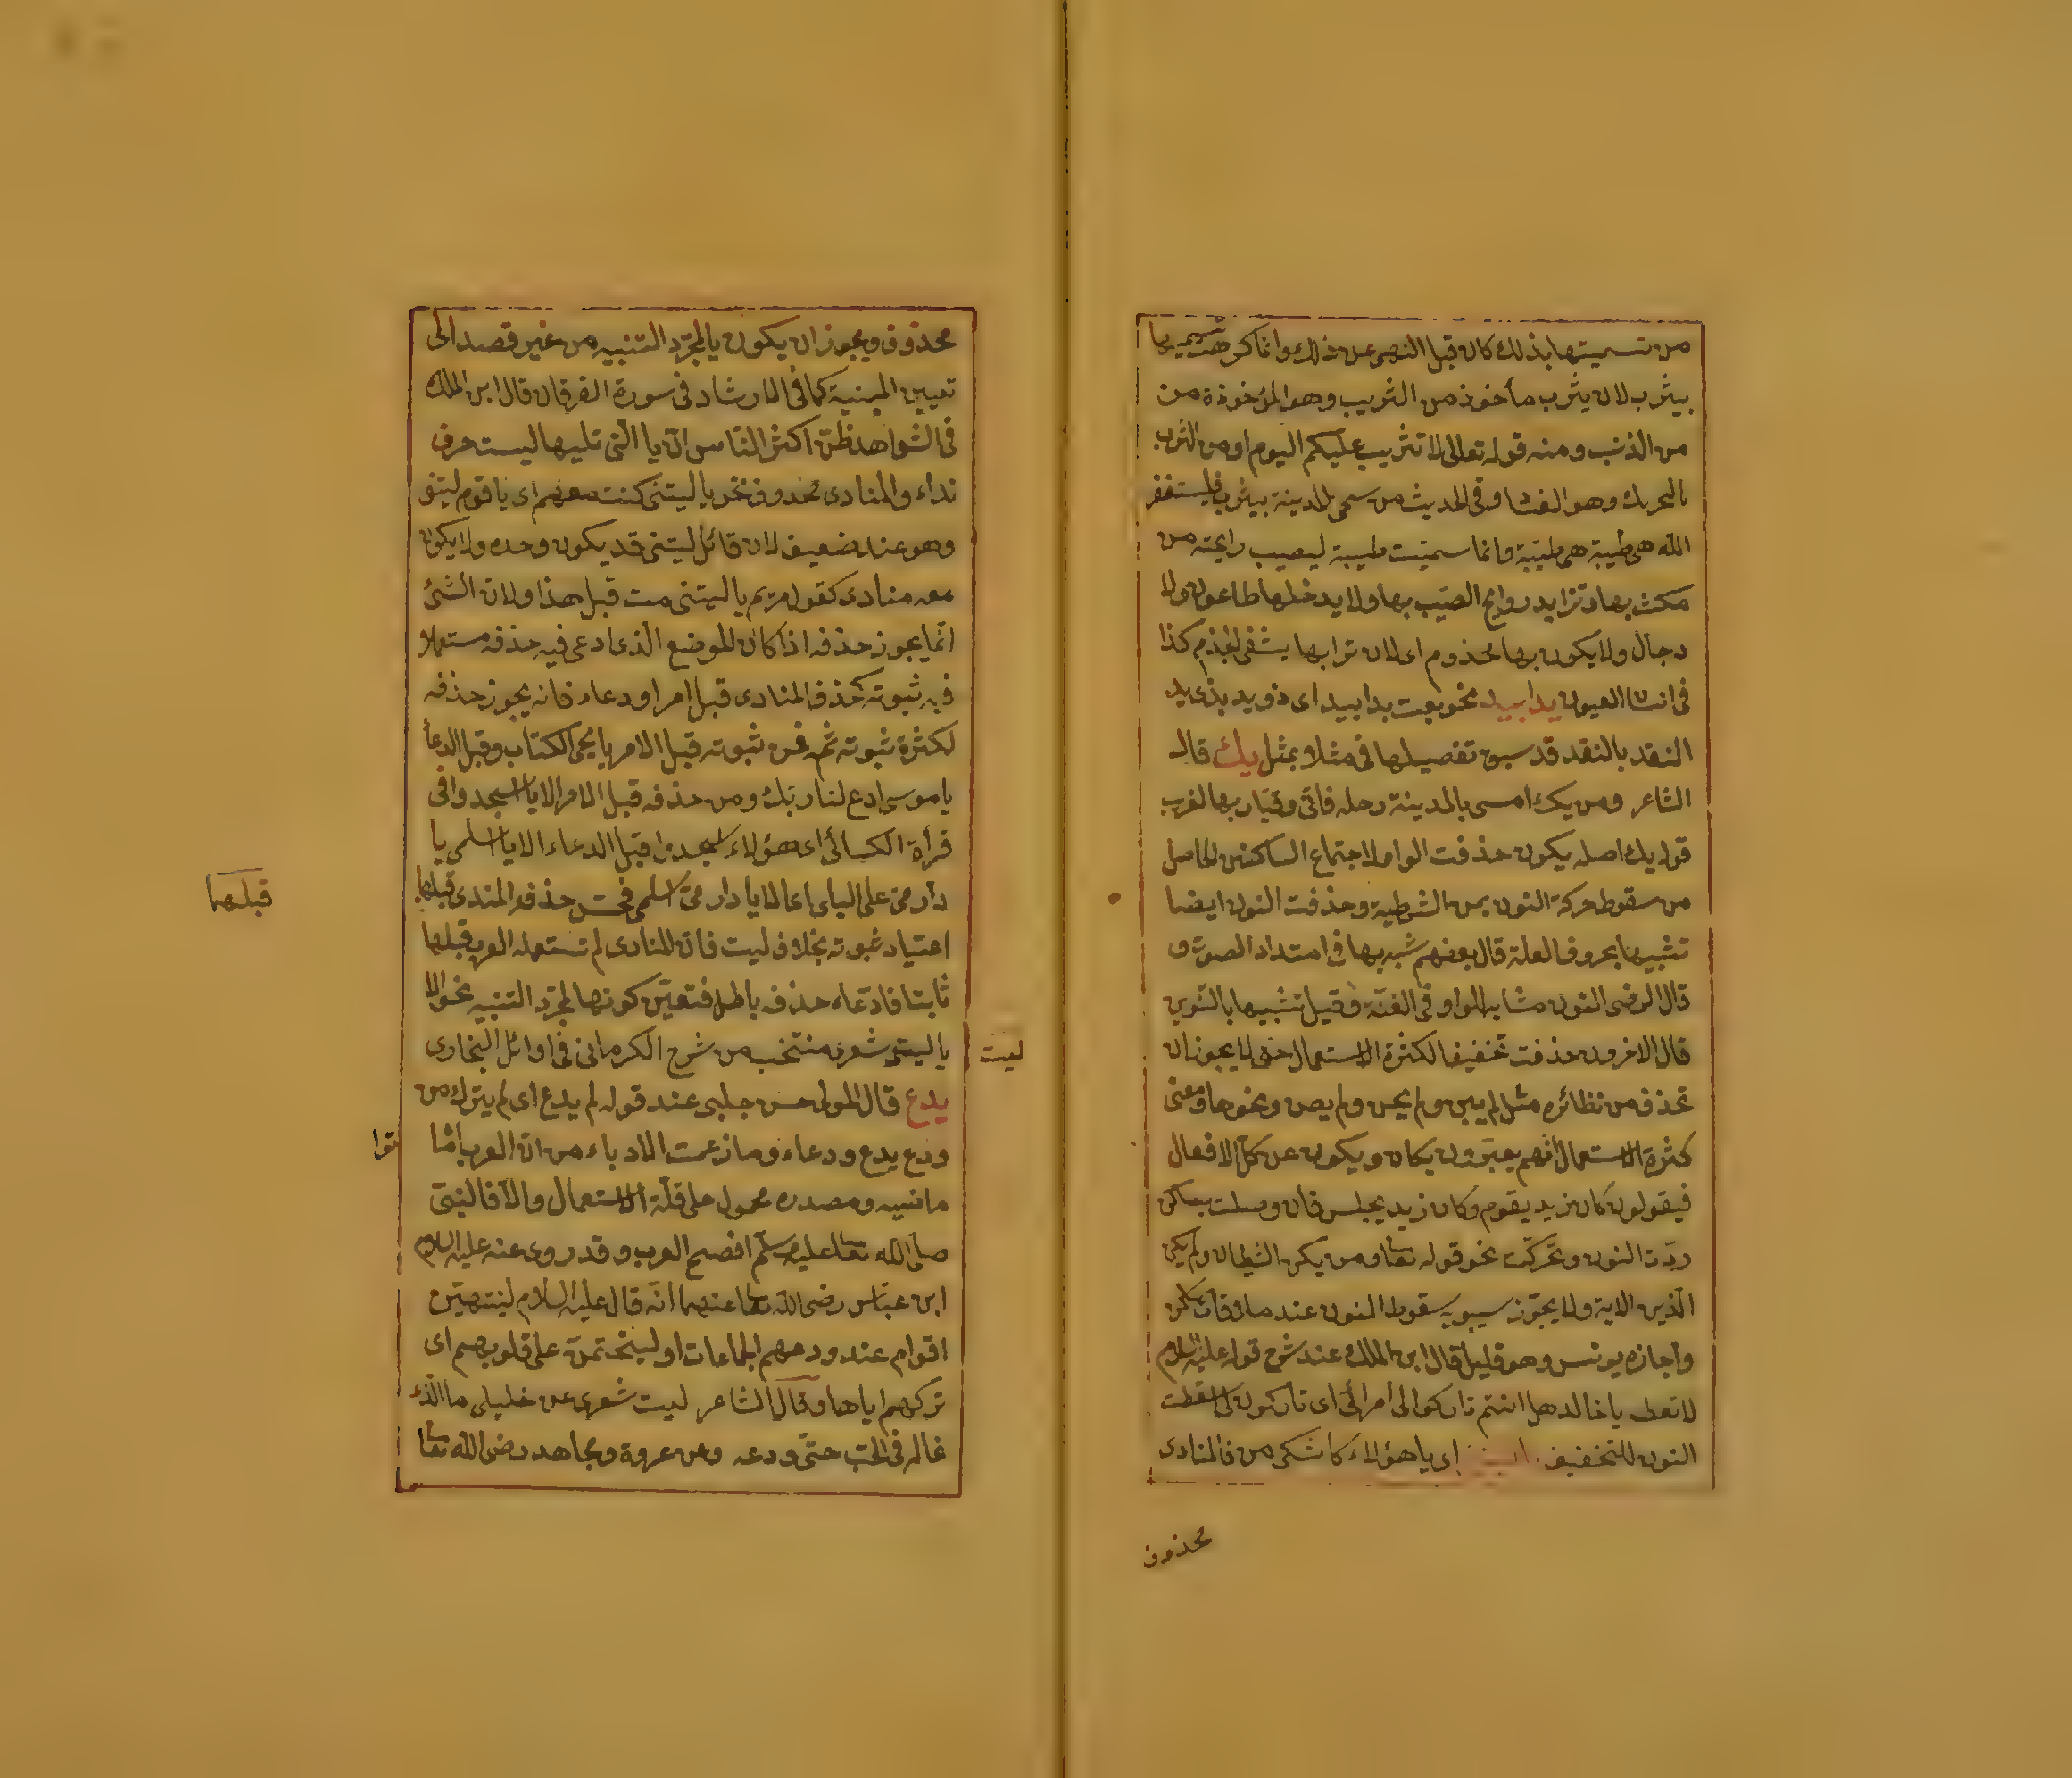 من تسميتها بذلك كان قبل النهى عن ذلك وانما كره تسميتها
بيثرب لان يثرب مأخوذ من الثريب وهو المؤخوذة من
من الذنب ومنه قوله تعالى لا تثريب عليكم اليوم او من الثرب
بالتحريك وهو الفساد وفى الحديث من سمى المدينة بيثرب فليستغفر
الله هى طيبة هى طيبة وانما سميت طيبة ليصيب رايحته من
مكث بها وتزايد روايح الطيب بها ولا يدخلها طاعون ولا
دجال ولا يكون بها مجذوم اى لان ترابها يشفى الجذم كذا
فى انسان العيون يدا بيد نحو بعت يدا بيد اى ذو يد بذى يد
النقد بالنقد قد سبق تفصيلها فى مثلا بمثل يك قال
الشاعر ومن يك امسى بالمدينة رحله فانى وقيار بها لغريب
قوله يك اصله يكون حذفت الواو لاجتماع الساكنين الحاصل
من سقوط حركة النون بمن الشرطية وحذفت النون ايضا
تشبيها بحروف العلة قال بعضهم شبه بها فى امتداد الصوت و
قال الرضى النون مشابه الواو فى الغنة وقيل تشبيها بالتنوين
قال الاخرون حذفت تخفيفا لكثرة الاستعمال حتى لا يجوز ان
تحذف من نظائره مثل لم يبن ولم يحن ولم يصن ونحوها ومعنى
كثرة الاستعمال انهم يعبرون بكان ويكون عن كل الافعال
فيقولون كان زيد يقوم وكان زيد يجلس فان وصلت بساكن
ردت النون وتحركت نحو قوله تعا ومن يكن الشيطان ولم يكن
الذين الاية ولا يجوز سيبويه سقوط النون عند ملاقات ساكن
واجازه يونس وهو قليل قال ابن الملك عند شرح قوله عليه السلام
لا تعطه يا خالد هل انتم تاركوا لى أمرائى اى تاركون لى سقطت
النون للتخفيف اى يا هؤلاء كاشكى من فالمنادى
محذوف
محذوف ويجوز ان يكون يا لمجرد التنبيه من غير قصد الى
تعيين المنبه كما فى الارشاد فى سورة الفرقان قال ابن الملك
فى الشواهد ظن اكثر الناس ان يا التى تليها ليت حرف
نداء والمنادى محذوف نحو يا ليتنى كنت معهم اى يا قوم ليتنى
وهو عند ضعيف لان قائل ليتنى قد يكون وحده ولا يكون
معه منادى كقول مريم يا ليتنى مت قبل هذا ولان الشئ
انما يجوز حذفه اذا كان الموضع الذى ادعى فيه حذفه مستعملا
فيه ثبوته كحذف المنادى قبل امر او دعاء فانه يجوز حذفه
لكثرة ثبوته ثمه فمن ثبوته قبل الامر يا يحيى الكتاب وقبل الدعأ
يا موسى ادع لنا ربك ومن حذفه قبل الامر الا يا اسجدوا فى
قرأة الكسائى اى هؤلاء اسجدوا قبل الدعاء الا يا اسلمى يا
دار مى على البلى اى الا يا دار مى اسلمى فحسن حذف المندى قبلها
قبلهما
اعتياد ثبوته بخلاف ليت فان المنادى لم تستعمله العرب قبلها
ثابتا فادعاء حذفه باطل فتعين كونها لمجرد التنبيه نحو الا
يا ليت شعرى منتخب من شرح الكرمانى فى اوائل البخارى
ليت
يدع قال المولى حسن جلبى عند قوله لم يدع اى لم يترك من
ودع يدع ودعاء وما زعمت الادباء من ان العرب اماتوا
ماضيه ومصدره محمول على قلة الاستعمال والا فالنبى
صلى الله تعا عليه وسلم افصح العرب وقد روى عنه عليه السلام
ابن عباس رضى الله تعا عنهما انه قال عليه السلام لينتهين
اقوام عند ودعهم الجماعات او ليختمن على قلوبهم اى
تركهم اياها وقال الشاعر ليت شعرى عن خليلى ما الذى
غاله فى الحب حتى ودعه وعن عروة ومجاهد رضى الله تعا